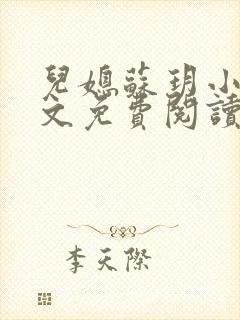 兒媳蘇玥小
文免費閱讀
李天際